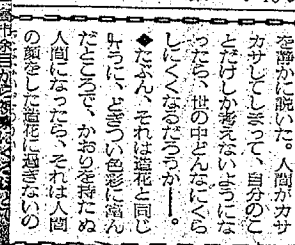 を静かに説いた。人間がカサ
カサしてしまって、自分のこ
とだけしか考えないようにな
ったら、世の中どんなにくら
しにくくなるだろうか――。
◆たぶん、それは造花と同じ
ように、どぎつい色彩に富ん
だところで、かおりを持たぬ
人間になったら、それは人間
の顔をした造花に過ぎないの